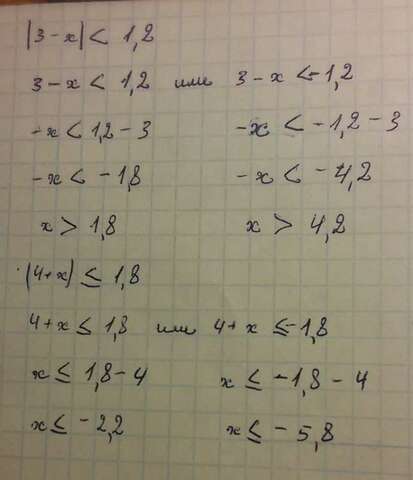 |3-x| < 1,2
3-x < 1,2 или 3-x <-1,2
-x < 1,2-3 -x < -1,2-3
-x < -1,8 -x < -4,2
x > 1,8 x > 4,2
|4+x| ≤ 1,8
4+x ≤ 1,8 или 4+x ≤-1,8
x ≤ 1,8-4 x ≤ -1,8-4
x ≤ -2,2 x ≤ -5,8